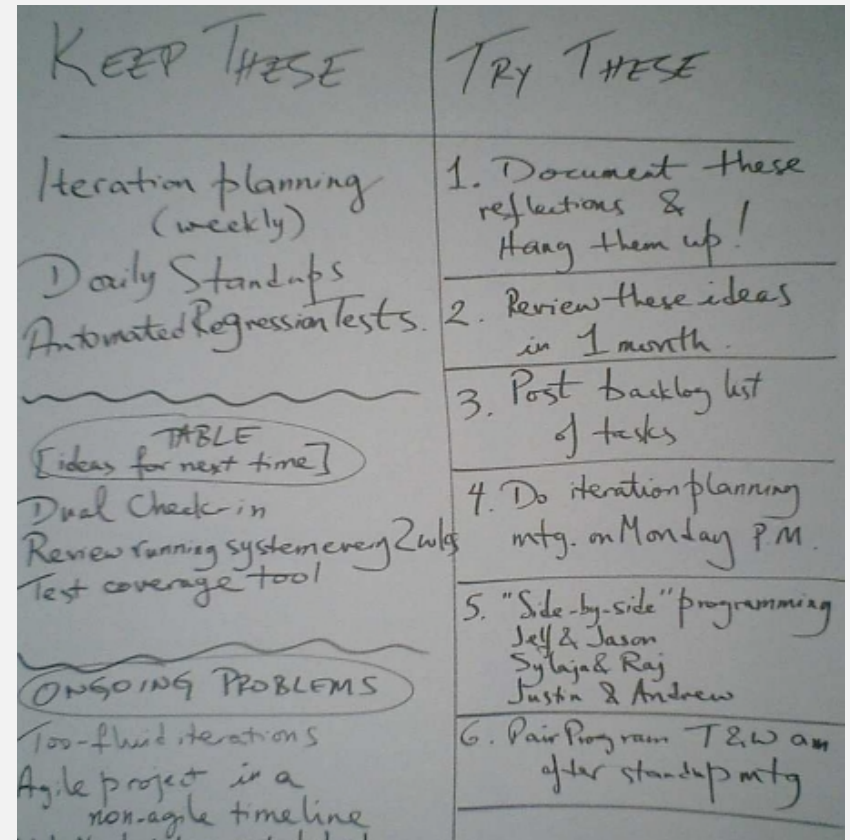 KEEP THESE
Iteration planning
(weekly)
Daily Standups
Automated Regression Tests.
TABLE
[ideas for next time]
Dual Check-in
Review running system every 2 wks
Test coverage tool
ONGOING PROBLEMS
Too-fluid iterations
Agile project in a
non-agile timeline
TRY THESE
1. Document these
reflections &
Hang them up!
2. Review these ideas
in 1 month.
3. Post backlog list
of tasks
4. Do iteration planning
mtg. on Monday P.M.
5. "Side-by-side" programming
Jeff & Jason
Sylaja & Raj
Justin & Andrew
6. Pair Program T & W am
after standup mtg